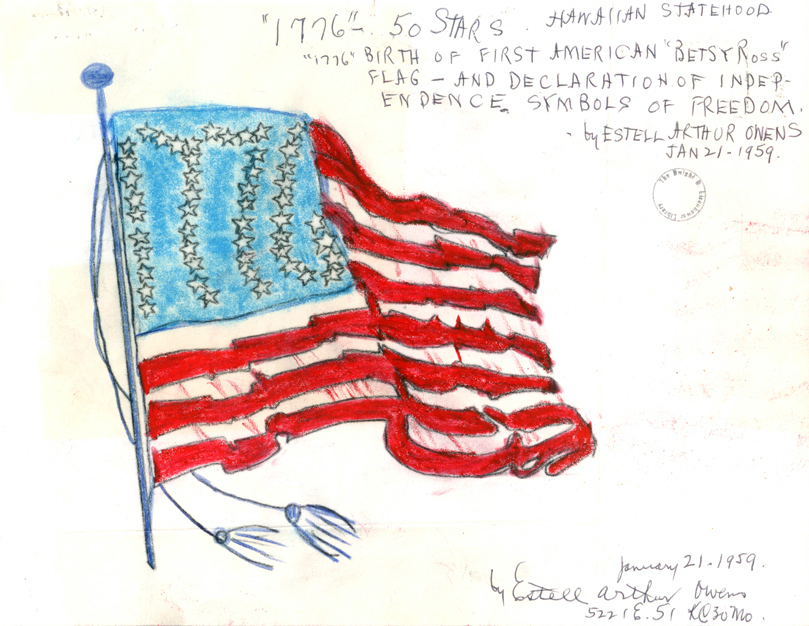 "1776" - 50 STARS. HAWAIIAN STATEHOOD
"1776" BIRTH OF FIRST AMERICAN "BETSY ROSS"
FLAG - AND DECLARATION OF INDEP-
ENDENCE. SYMBOLS OF FREEDOM.
- by ESTELL ARTHUR OWENS
JAN 21-1959.
The Dwight D. Eisenhower Library
January 21-1959.
by Estell Arthur Owens
5221 E. 51 KC30Mo.